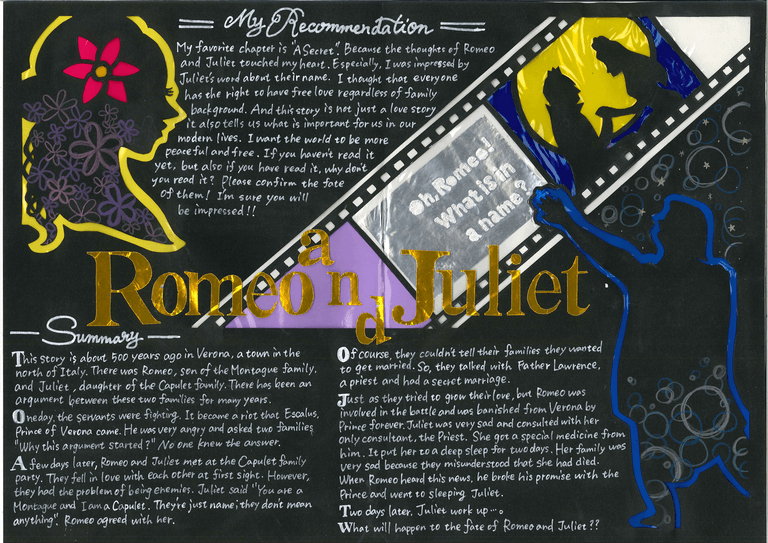 My Recommendation
My favorite chapter is "A Secret". Because the thoughts of Romeo
and Juliet touched my heart. Especially, I was impressed by
Juliet's word about their name. I thought that everyone
has the right to have free love regardless of family
background. And this story is not just a love story
it also tells us what is important for us in our
modern lives. I want the world to be more
peaceful and free. If you haven't read it
yet, but also if you have read it, why don't
you read it? Please confirm the fate
of them! I'm sure you will
be impressed!!
Oh, Romeo!
What is in
a name?
Romeo and Juliet
Summary
This story is about 500 years ago in Verona, a town in the
north of Italy. There was Romeo, son of the Montague family,
and Juliet, daughter of the Capulet family. There has been an
argument between these two families for many years.
One day, the servants were fighting. It became a riot that Escalus,
Prince of Verona came. He was very angry and asked two families
"Why this argument started?" No one knew the answer.
A few days later, Romeo and Juliet met at the Capulet family
party. They fell in love with each other at first sight. However,
they had the problem of being enemies. Juliet said "You are a
Montague and I am a Capulet. They're just name; they don't mean
anything" Romeo agreed with her.
Of course, they couldn't tell their families they wanted
to get married. So, they talked with Father Lawrence,
a priest and had a secret marriage.
Just as they tried to grow their love, but Romeo was
involved in the battle and was banished from Verona by
Prince forever. Juliet was very sad and consulted with her
only consultant, the Priest. She got a special medicine from
him. It put her to a deep sleep for two days. Her family was
very sad because they misunderstood that she had died.
When Romeo heard this news, he broke his promise with the
Prince and went to sleeping Juliet.
Two days later, Juliet work up...
What will happen to the fate of Romeo and Juliet??